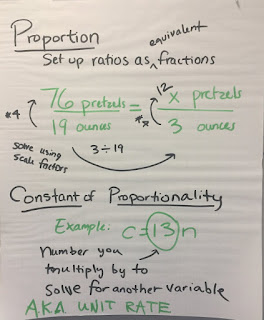 Proportion
equivalent
Set up ratios as ^ fractions
76 pretzels = x pretzels
12
*4
19 ounces 3 ounces
solve using
scale factors
3 ÷ 19
Constant of Proportionality
Example: c = 13n
Number you
multiply by to
Solve for another variable
A.K.A. UNIT RATE